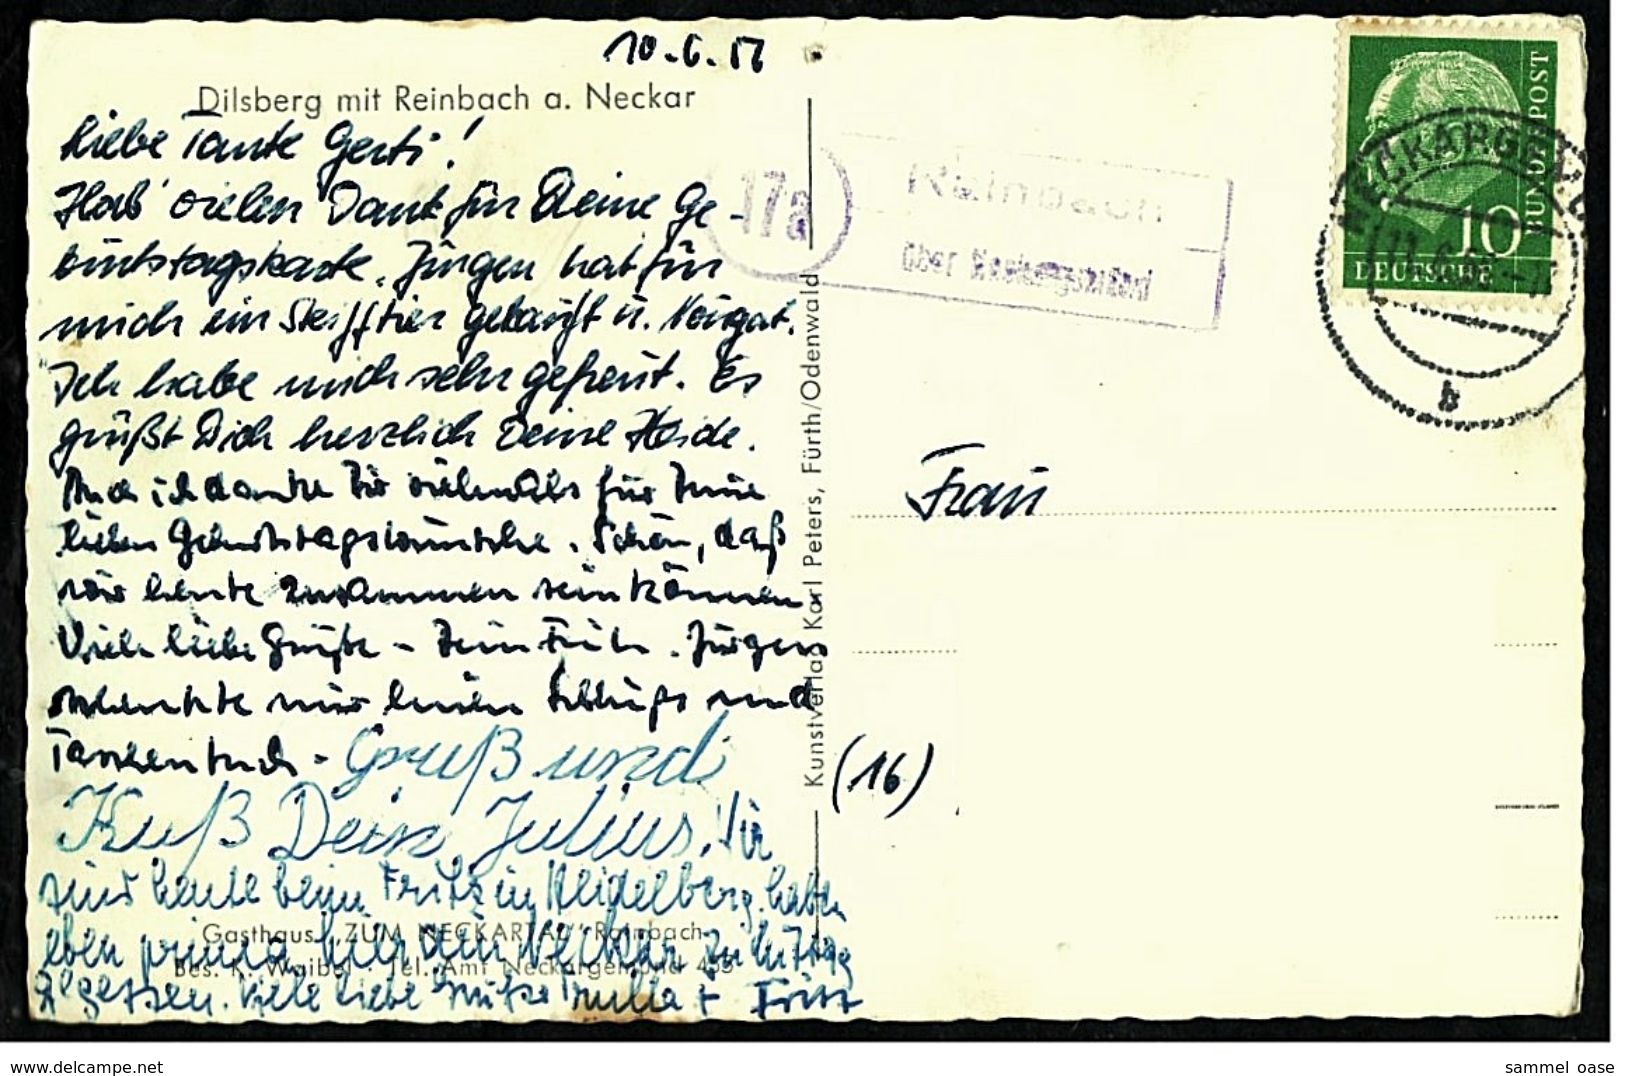 10.6.57
Dilsberg mit Reinbach a. Neckar
Liebe Tante Gerti!
Hab' vielen Dank für Deine Ge-
burtstagskarte. Jürgen hat für
mich ein Steifftier gekauft u. Nougat.
Ich habe mich sehr gefreut. Es
grüßt Dich herzlich Deine Heide.
Auch ich danke Dir vielmals für Deine
lieben Geburtstagswünsche. Schön, daß
wir heute zusammen sein können.
Viele liebe Grüße – Dein Fritz. Jürgen
schenkte mir einen Schlips und
Taschentuch – Gruß und
Kuß Dein Julius. Wir
sind heute beim Fritz in Heidelberg. haben
eben prima hier am Neckar zu Mittag
gegessen. Viele liebe Grüße + Fritz
Gasthaus „ZUM NECKARTAL" Rainbach
Bes. K. Waibel · Tel. Amt Neckargemünd 455
Kunstverlag Karl Peters, Fürth/Odenwald
17a
Rainbach
über Neckargemünd
DEUTSCHE
BUNDESPOST
10
NECKARGEMÜND
b
Frau
(16)
www.delcampe.net
sammel_oase